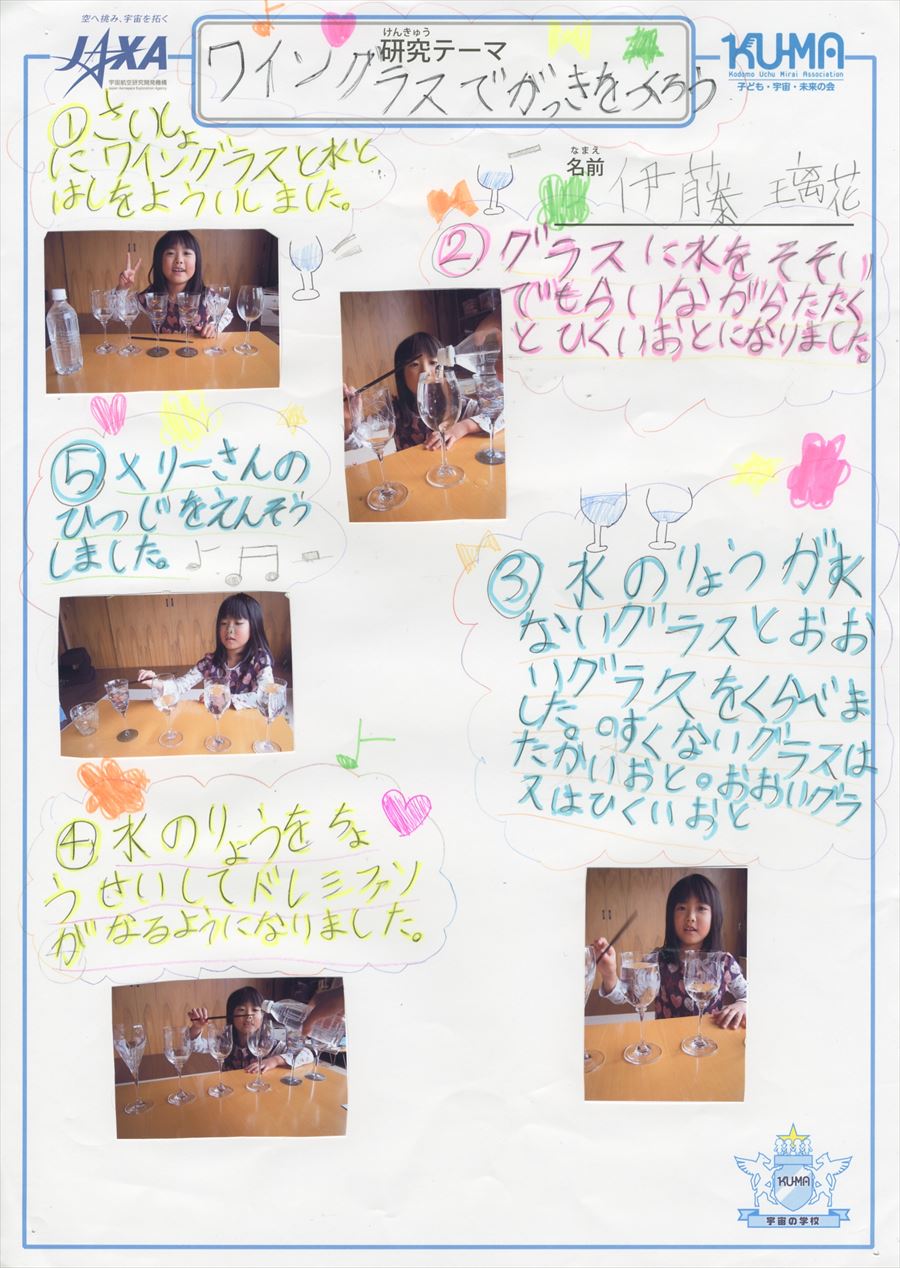 空へ挑み、宇宙を拓く
JAXA
宇宙航空研究開発機構
Japan Aerospace Exploration Agency
けんきゅう
研究テーマ
ワイングラスでがっきをつくろう
KU-MA
Kodomo Uchu Mirai Association
子ども・宇宙・未来の会
なまえ
名前 伊藤 璃花
①さいしょ
にワイングラスと水と
はしをよういしました。
②グラスに水をそそい
でもらいながらたたく
とひくいおとになりました。
③水のりょうがすく
ないグラスとおお
いグラスをくらべま
した。すくないグラスは
たかいおと。おおいグラ
スはひくいおと
④水のりょうをちょ
うせいしてドレミファソ
がなるようになりました。
⑤メリーさんの
ひつじをえんそう
しました。
KU-MA
宇宙の学校